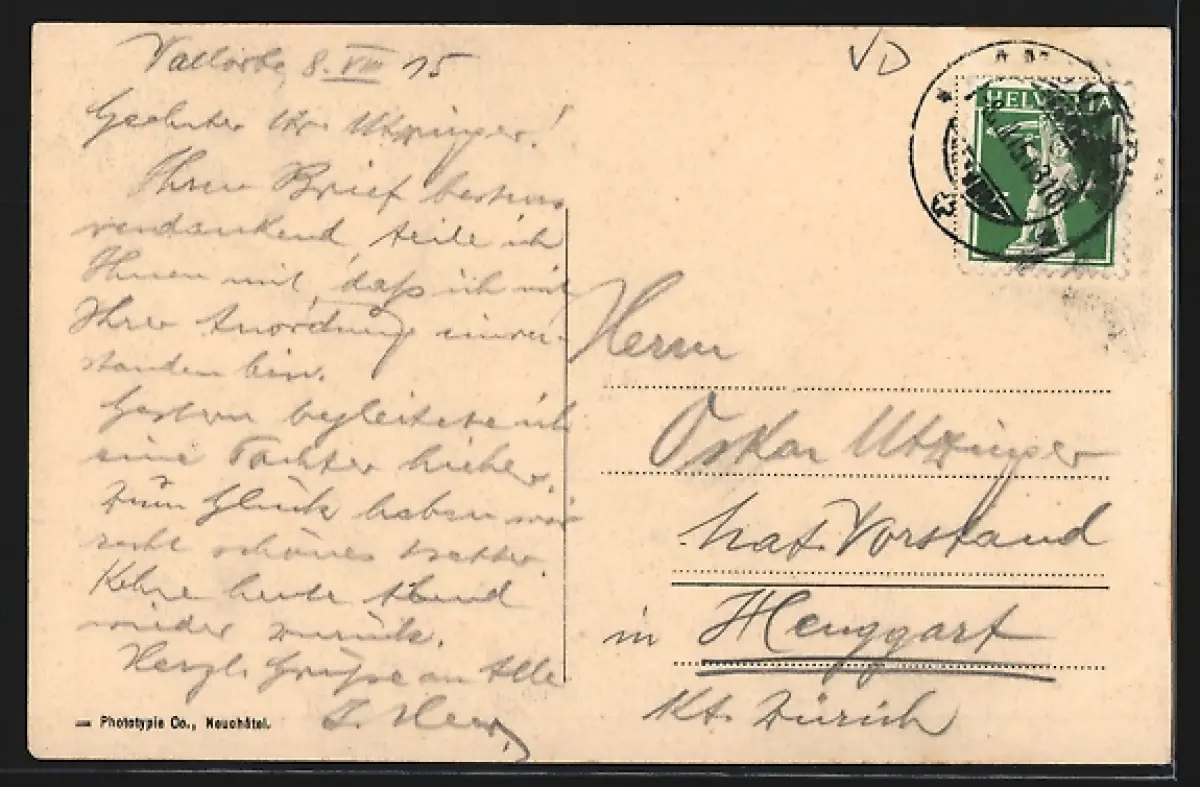 Vallorbe, 8. VIII 15
Geehrter Hr. Utzinger!
Ihren Brief bestens
verdankend, teile ich
Ihnen mit, daß ich mit
Ihrer Anordnung einver-
standen bin.
Gestern begleitete ich
eine Tochter hieher.
Zum Glück haben wir
recht schönes Wetter.
Kehre heute Abend
wieder zurück.
Herzl. Grüße an Alle
Phototypie Co., Neuchâtel.
VD
HELVETIA
Herrn
Oskar Utzinger
Vorstand
in Henggart
Kt. Zürich